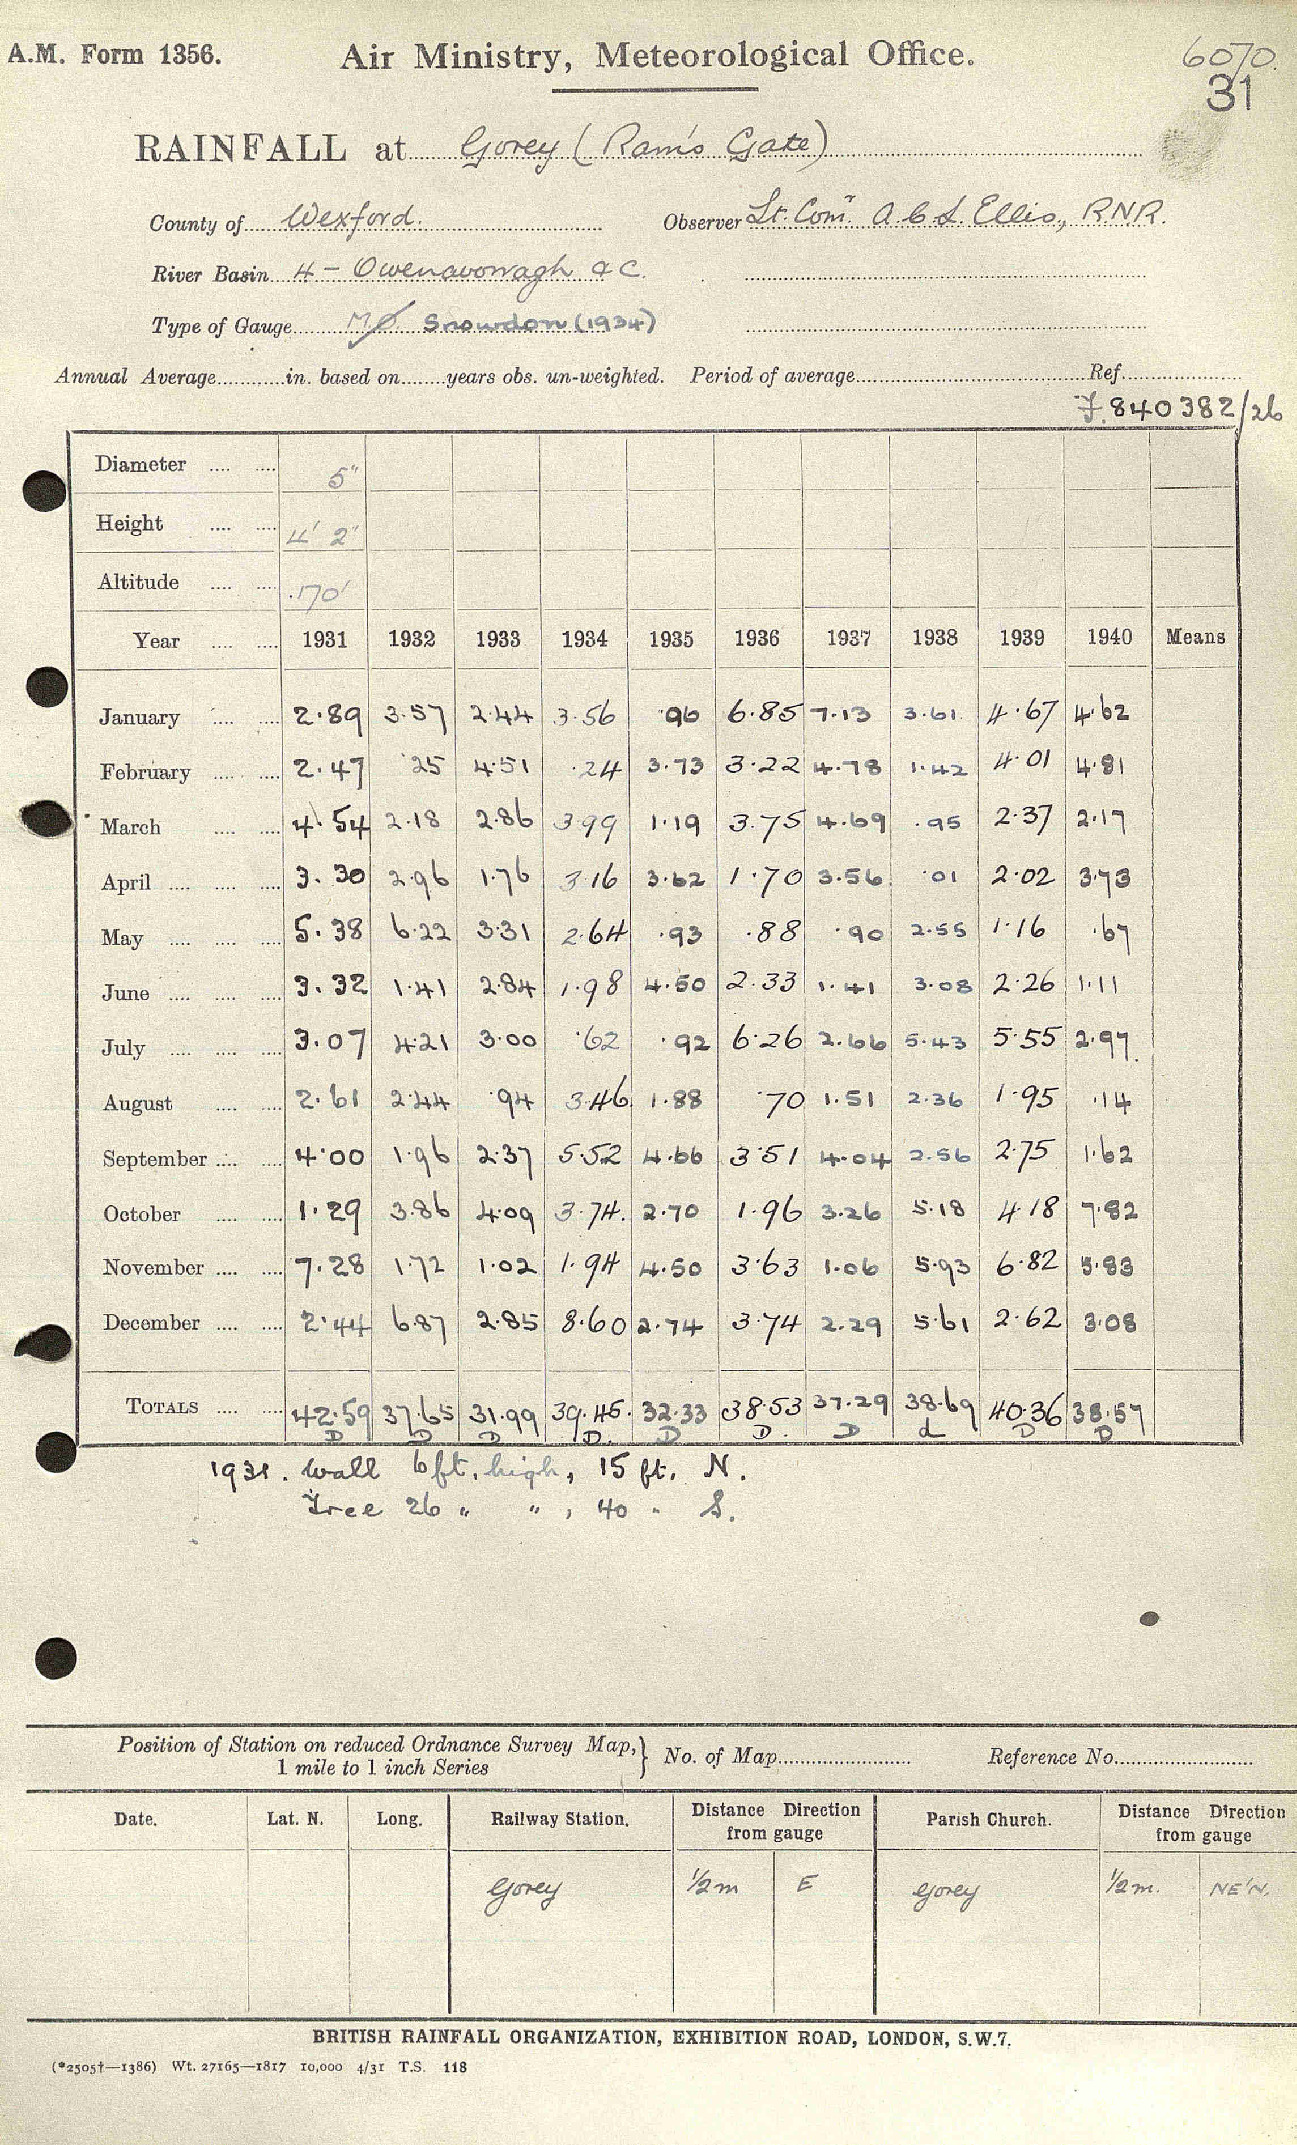 A.M. Form 1356. Air Ministry, Meteorological Office. 6070.
31
RAINFALL at Gorey (Ram's Gate)
County of Wexford. Observer Lt. Comr. A.C.L. Ellis, RNR.
River Basin 4 – Owenavorragh &C.
Type of Gauge MO Snowdon (1934)
Annual Average in. based on years obs. un-weighted. Period of average Ref.
840382/26
Diameter 5"
Height 4' 2"
Altitude 170'
Year 1931 1932 1933 1934 1935 1936 1937 1938 1939 1940 Means
January 2·89 3·57 2·44 3·56 ·96 6·85 7·13 3·61 4·67 4·62
February 2·47 ·25 4·51 ·24 3·73 3·22 4·78 1·42 4·01 4·81
March 4·54 2·18 2·86 3·99 1·19 3·75 4·69 ·95 2·37 2·17
April 3·30 2·96 1·76 3·16 3·62 1·70 3·56 ·01 2·02 3·73
May 5·38 6·22 3·31 2·64 ·93 ·88 ·90 2·55 1·16 ·67
June 3·32 1·41 2·84 1·98 4·50 2·33 1·41 3·08 2·26 1·11
July 3·07 4·21 3·00 ·62 ·92 6·26 2·66 5·43 5·55 2·97
August 2·61 2·44 ·94 3·46 1·88 ·70 1·51 2·36 1·95 ·14
September 4·00 1·96 2·37 5·52 4·66 3·51 4·04 2·56 2·75 1·62
October 1·29 3·86 4·09 3·74 2·70 1·96 3·26 5·18 4·18 7·82
November 7·28 1·72 1·02 1·94 4·50 3·63 1·06 5·93 6·82 5·83
December 2·44 6·87 2·85 8·60 2·74 3·74 2·29 5·61 2·62 3·08
TOTALS 42·59 37·65 31·99 39·45 32·33 38·53 37·29 38·69 40·36 38·57
D D D D. D D. D d D D
1931. Wall 6 ft. high, 15 ft. N.
Tree 26 " ", 40 " S.
Position of Station on reduced Ordnance Survey Map, No. of Map Reference No.
1 mile to 1 inch Series
Date. Lat. N. Long. Railway Station. Distance Direction from gauge Parish Church. Distance Direction from gauge
Gorey 1/2 m E Gorey 1/2 m. NE'N.
BRITISH RAINFALL ORGANIZATION, EXHIBITION ROAD, LONDON, S.W.7.
(*2505†—1386) Wt. 27165—1817 10,000 4/31 T.S. 118